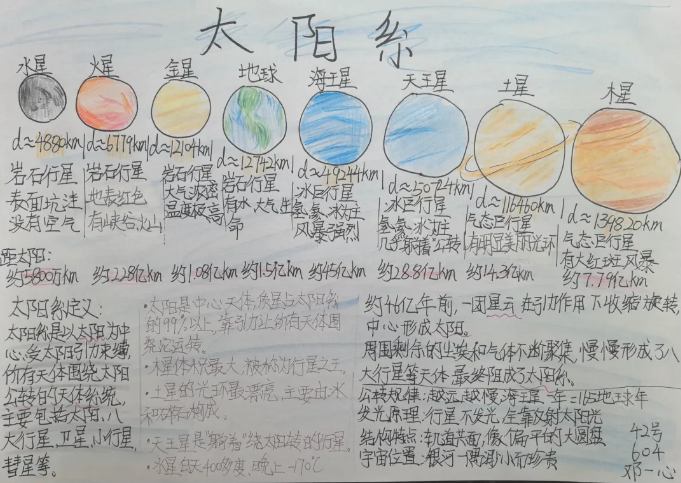 太阳系
水星
火星
金星
地球
海王星
天王星
土星
木星
d≈4880km
d≈6779km
d≈12104km
d≈12742km
d≈49244km
d≈50724km
d≈116460km
d≈139820km
岩石行星
表面坑洼
没有空气
岩石行星
地表红色
有峡谷火山
岩石行星
大气浓密
温度极高
岩石行星
有水、大气、生
命
冰巨行星
氢、氦、冰为主
风暴强烈
冰巨行星
氢、氦、冰为主
几乎躺着公转
气态巨行星
有明显美丽光环
气态巨行星
有大红斑风暴
距太阳:
约5800万km
约2.28亿km
约1.08亿km
约1.5亿km
约45亿km
约28.8亿km
约14.3亿km
约7.79亿km
太阳系定义:
太阳系是以太阳为中
心,受太阳引力束缚,
所有天体围绕太阳
公转的天体系统,
主要包括太阳、八
大行星、卫星、小行星、
彗星等。
·太阳是中心天体,质量占太阳系
的99%以上,靠引力让所有天体围
绕它运转。
·木星体积最大,被称为行星之王。
·土星的光环最漂亮,主要由冰
和碎石构成。
·天王星是“躺着”绕太阳转的行星。
·水星白天400多度,晚上-170℃
约46亿年前,一团星云在引力作用下收缩旋转,
中心形成太阳。
周围剩余的尘埃和气体不断聚集,慢慢形成了八
大行星等天体,最终组成了太阳系。
公转规律:越远越慢,海王星一年=165地球年
发光原理:行星不发光,全靠反射太阳光
结构特点:轨道共面,像偏平的大圆盘
宇宙位置:银河一隅,渺小而珍贵
42号
604
邓一心